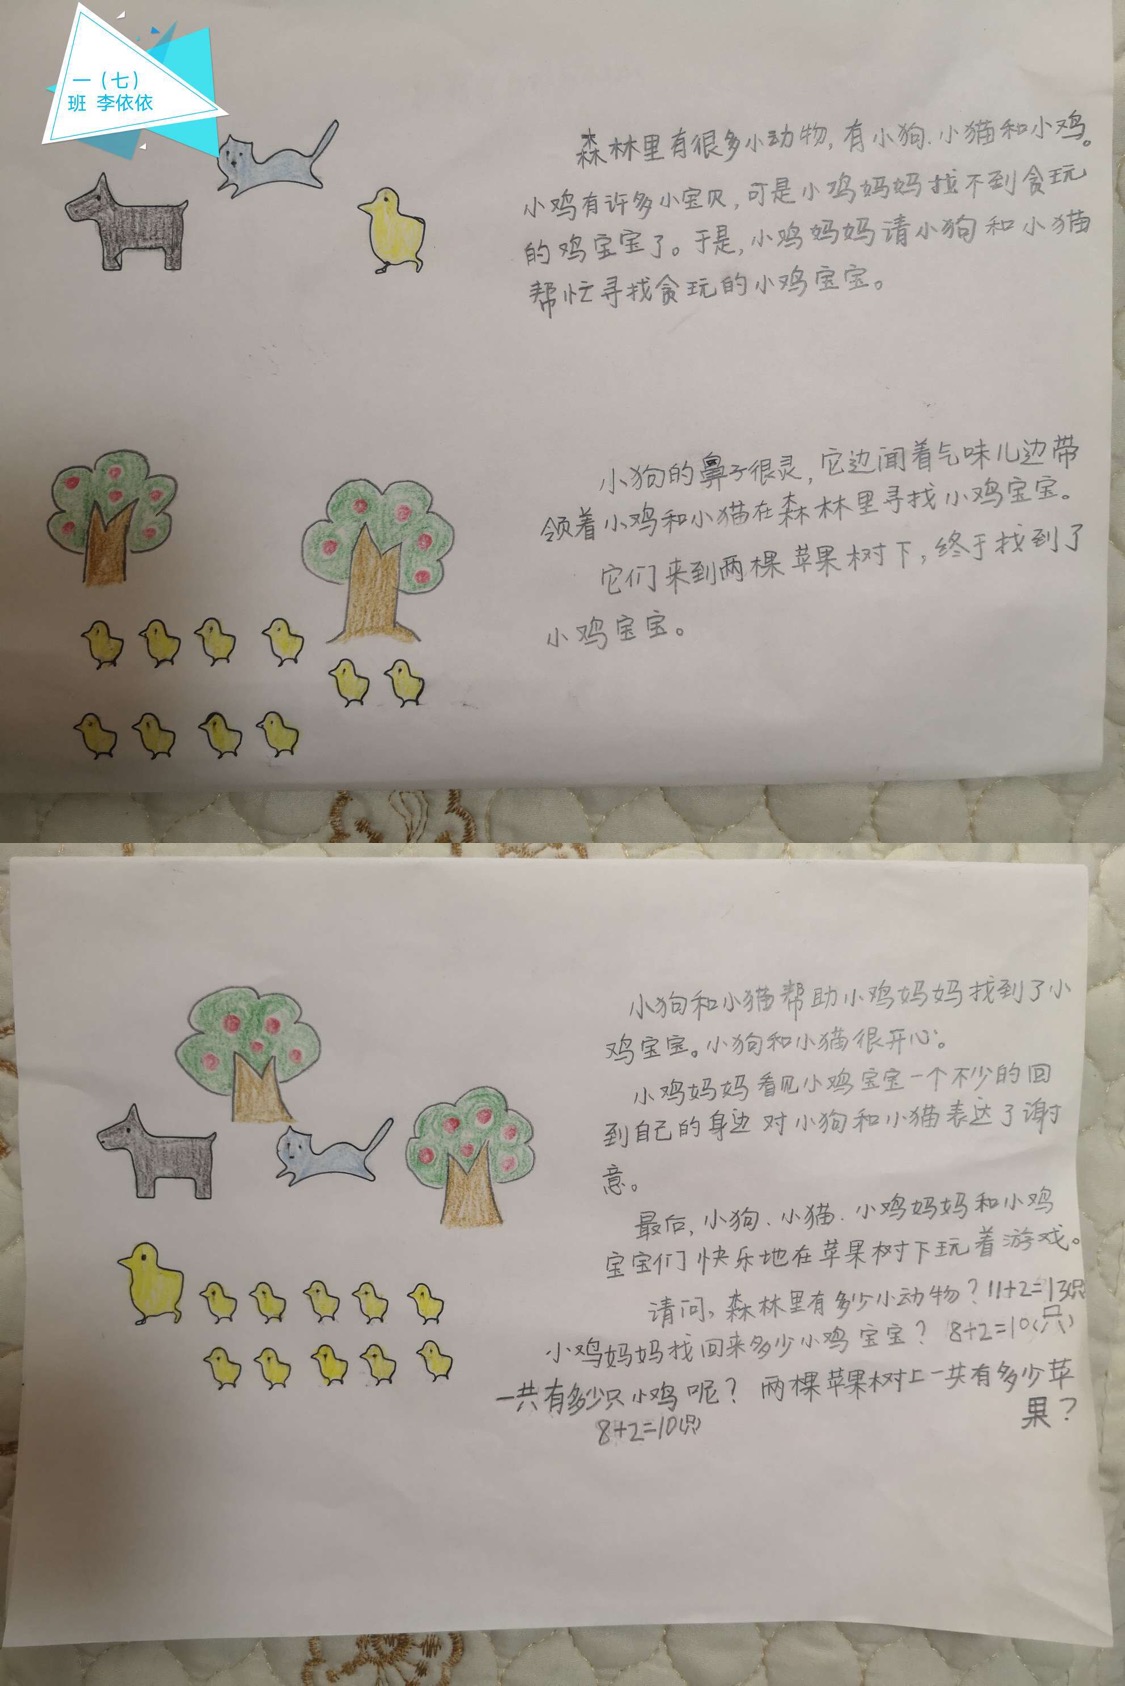 一（七）
班 李依依
森林里有很多小动物，有小狗、小猫和小鸡。
小鸡有许多小宝贝，可是小鸡妈妈找不到贪玩
的鸡宝宝了。于是，小鸡妈妈请小狗和小猫
帮忙寻找贪玩的小鸡宝宝。
小狗的鼻子很灵，它边闻着气味儿边带
领着小鸡和小猫在森林里寻找小鸡宝宝。
它们来到两棵苹果树下，终于找到了
小鸡宝宝。
小狗和小猫帮助小鸡妈妈找到了小
鸡宝宝。小狗和小猫很开心。
小鸡妈妈看见小鸡宝宝一个不少的回
到自己的身边对小狗和小猫表达了谢
意。
最后，小狗、小猫、小鸡妈妈和小鸡
宝宝们快乐地在苹果树下玩着游戏。
请问，森林里有多少小动物？11+2=13只
小鸡妈妈找回来多少小鸡宝宝？ 8+2=10（只）
一共有多少只小鸡呢？ 两棵苹果树上一共有多少苹
果？
8+2=10（只）